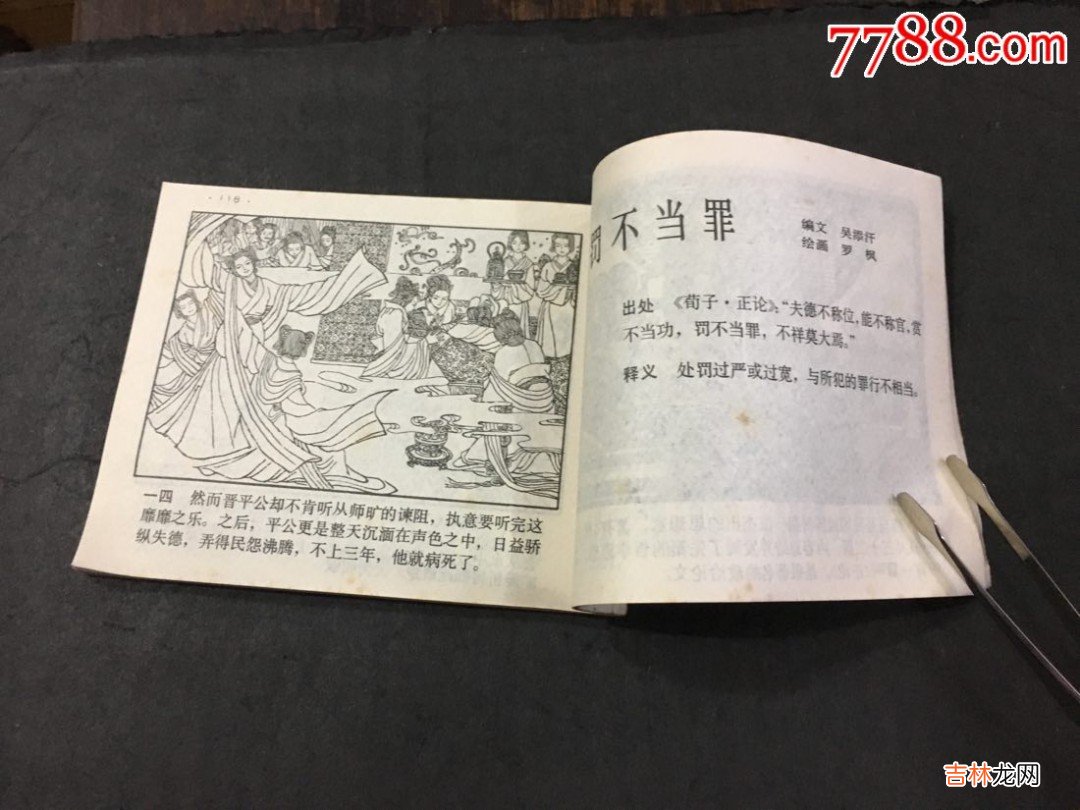 7788.com
·116·
一四　然而晋平公却不肯听从师旷的谏阻，执意要听完这
靡靡之乐。之后，平公更是整天沉湎在声色之中，日益骄
纵失德，弄得民怨沸腾，不上三年，他就病死了。
罚不当罪
编文　吴添汗
绘画　罗枫
出处　《荀子·正论》：“夫德不称位，能不称官，赏
不当功，罚不当罪，不祥莫大焉。”
释义　处罚过严或过宽，与所犯的罪行不相当。
吉林龙网